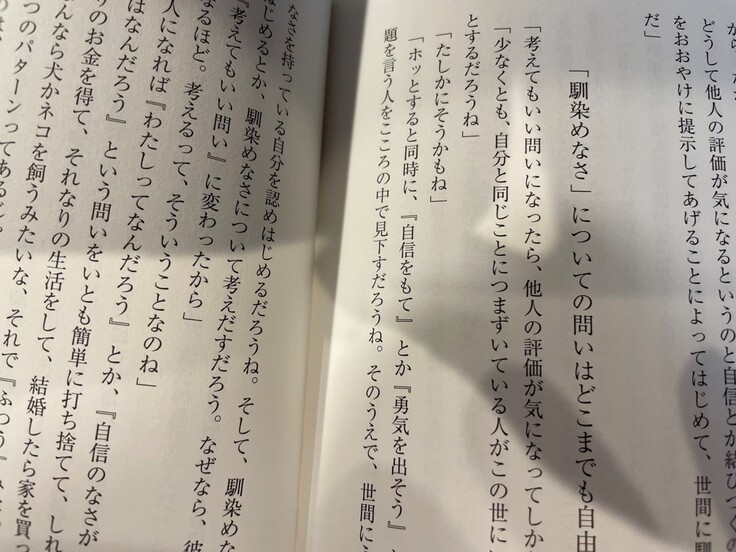 から
どうして他人の評価が気になるというのと自信とが結びつくの
をおおやけに提示してあげることによってはじめて、世間に馴
だ」
「馴染めなさ」についての問いはどこまでも自由
「考えてもいい問いになったら、他人の評価が気になってしか
「少なくとも、自分と同じことにつまずいている人がこの世に
とするだろうね」
「たしかにそうかもね」
「ホッとすると同時に、『自信をもて』とか『勇気を出そう』
題を言う人をこころの中で見下すだろうね。そのうえで、世間に
なさを持っている自分を認めはじめるだろうね。そして、馴染めな
はじめるとか、馴染めなさについて考えだすだろう。なぜなら、彼
『考えてもいい問い』に変わったから」
なるほど。考えるって、そういうことなのね」
人になれば『わたしってなんだろう』とか、『自信のなさが
はなんだろう』という問いをいとも簡単に打ち捨てて、しれ
りのお金を得て、それなりの生活をして、結婚したら家を買っ
んなら犬かネコを飼うみたいな、それで『ふつう』み
つのパターンってあるじ